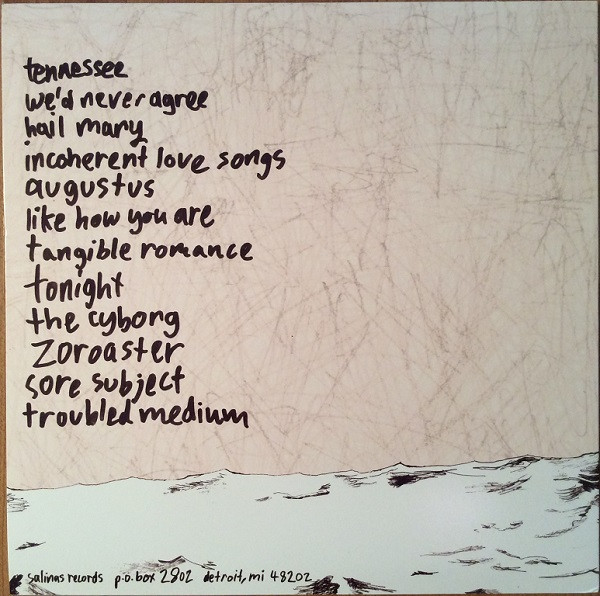 tennessee
we'd never agree
hail mary
incoherent love songs
augustus
like how you are
tangible romance
tonight
the cyborg
zoroaster
sore subject
troubled medium
salinas records p.o. box 2802 detroit, mi 48202